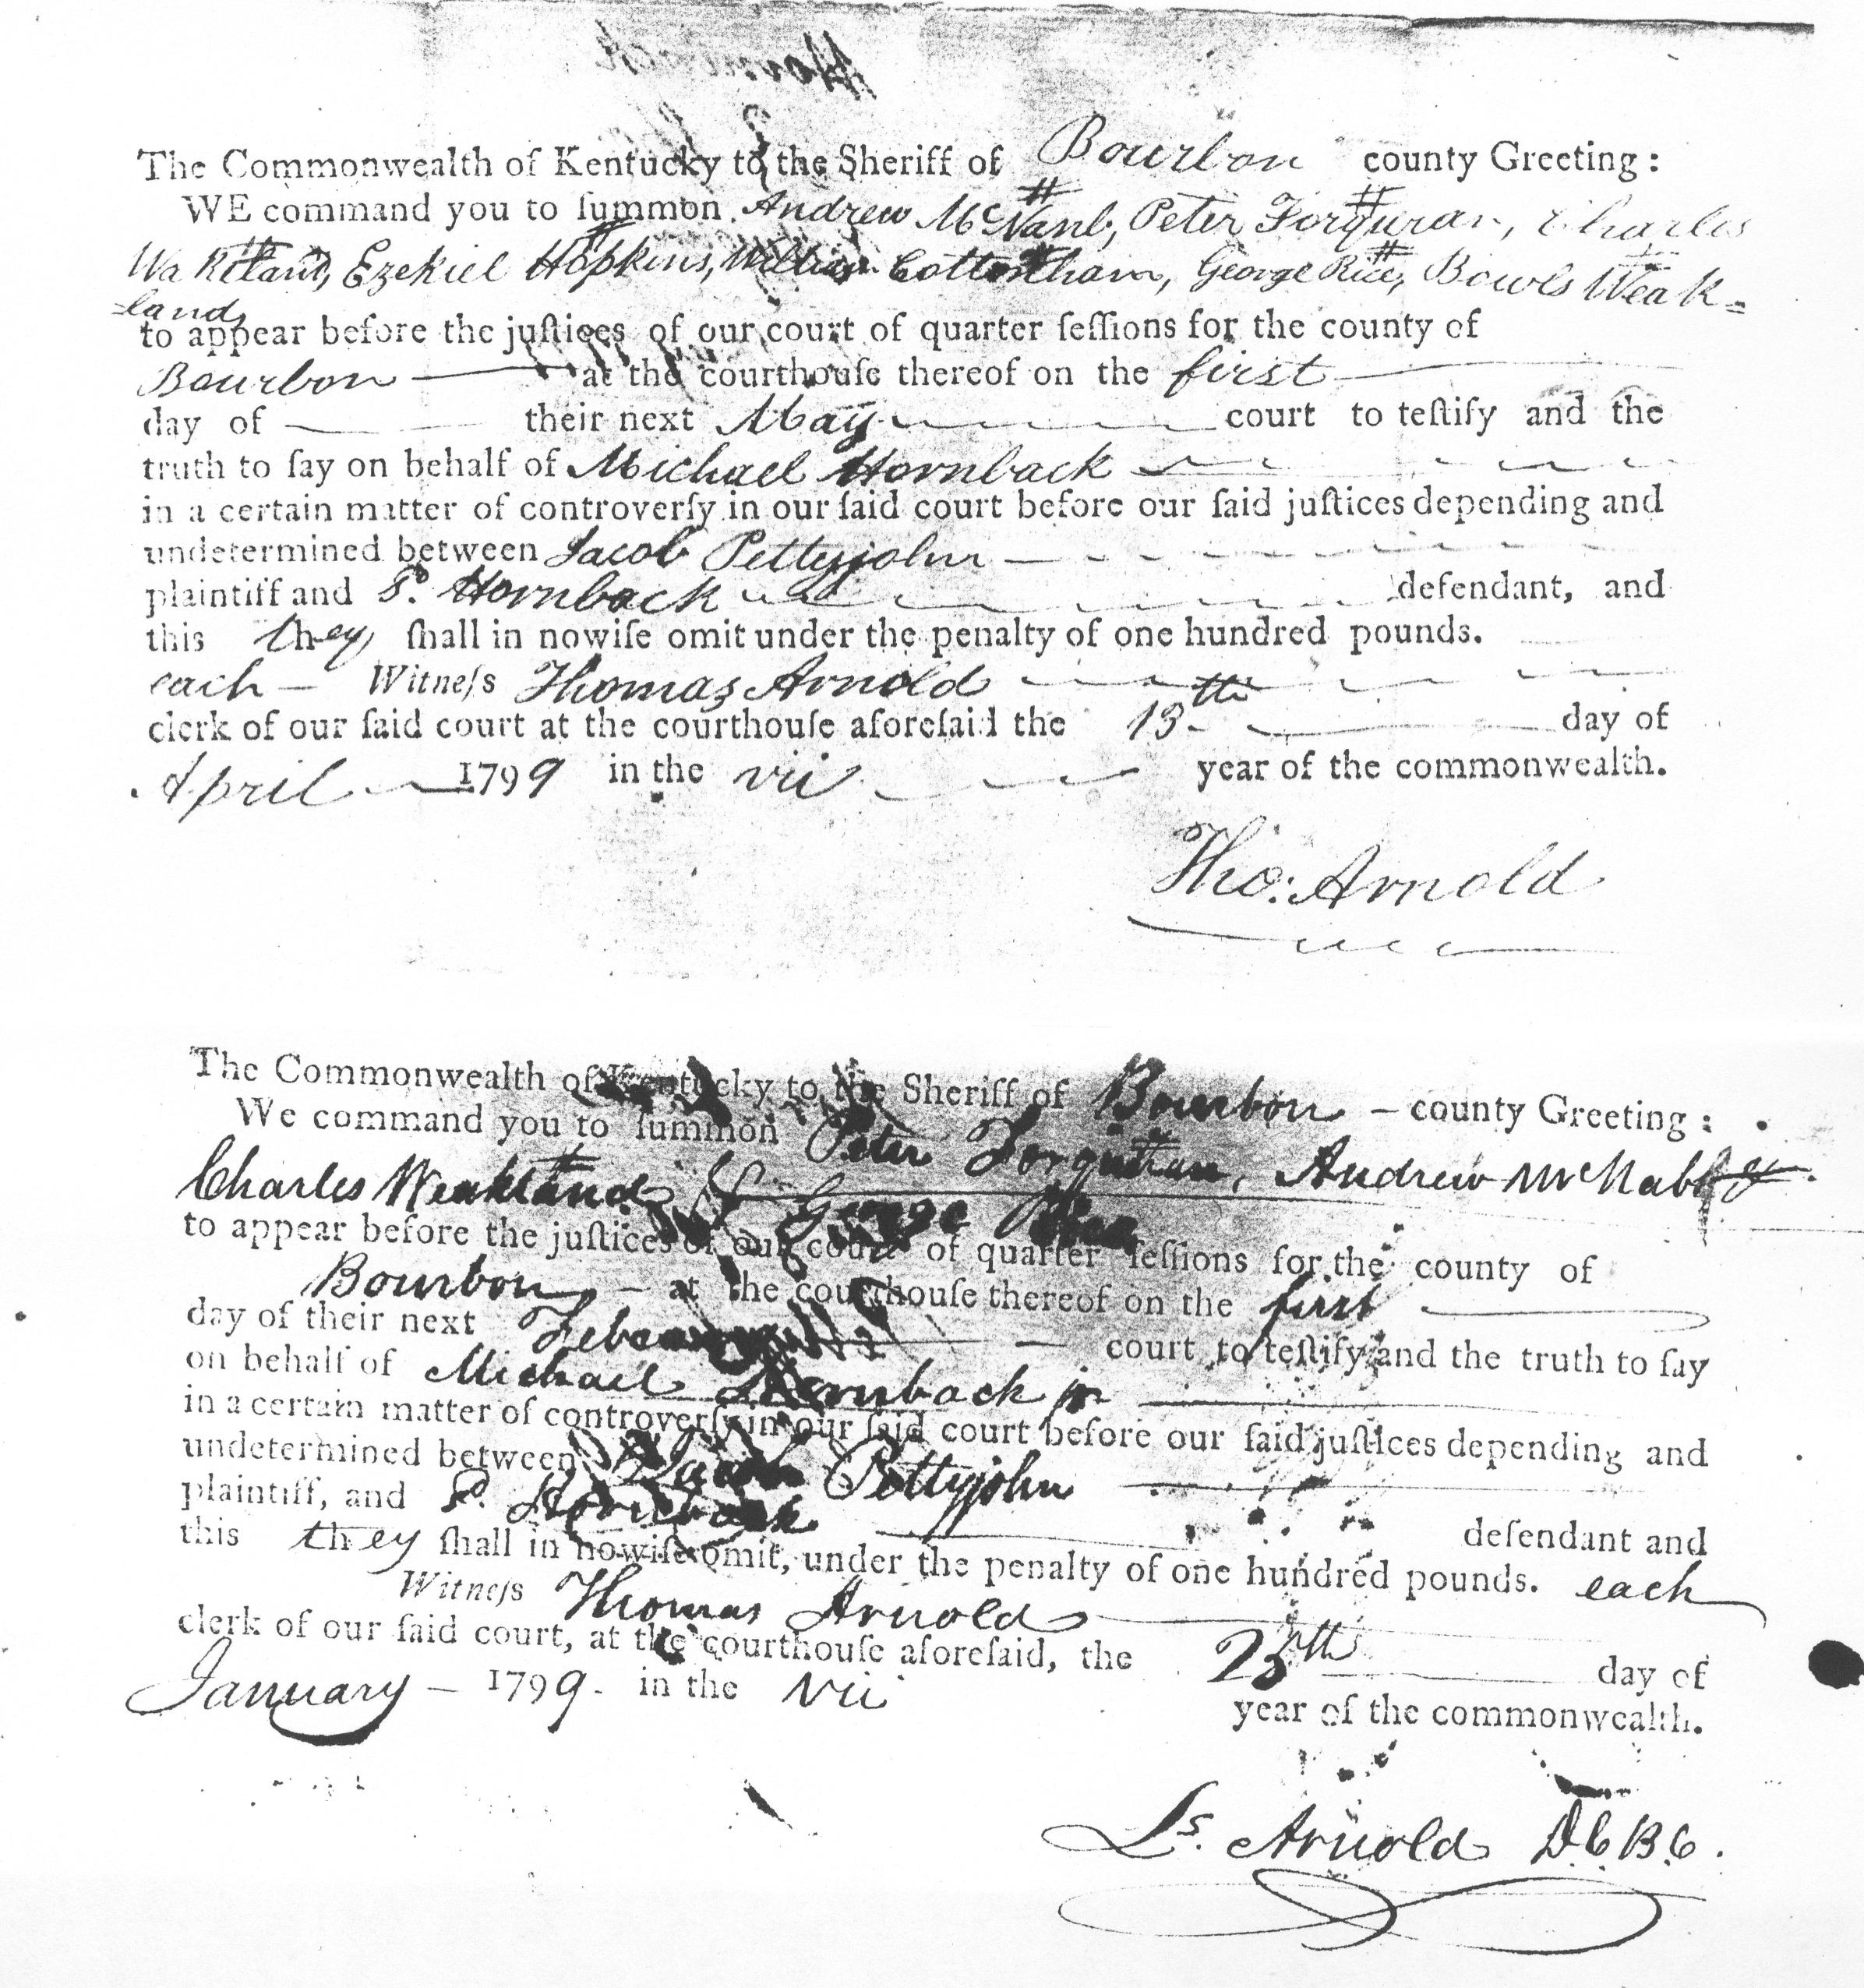 The Commonwealth of Kentucky to the Sheriff of Bourbon county Greeting:
WE command you to ſummon Andrew McNanb, Peter Forquran, Charles
Wakeland, Ezekiel Hopkins, William Cottontham, George Rice, Bowls Weak=
land
to appear before the juſtices of our court of quarter ſeſſions for the county of
Bourbon at the courthouſe thereof on the first
day of their next May court to teſtify and the
truth to ſay on behalf of Michael Hornback
in a certain matter of controverſy in our ſaid court before our ſaid juſtices depending and
undetermined between Jacob Pettyjohn
plaintiff and S. Hornback defendant, and
this they ſhall in nowiſe omit under the penalty of one hundred pounds.
each — Witneſs Thomas Arnold
clerk of our ſaid court at the courthouſe aforeſaid the 13th day of
April 1799 in the vii year of the commonwealth.
Tho: Arnold
The Commonwealth of Kentucky to the Sheriff of Bourbon – county Greeting:
We command you to ſummon Peter Forquran, Andrew McNabb
Charles Weakland & George Rice
to appear before the juſtices of our court of quarter ſeſſions for the county of
Bourbon – at the courthouſe thereof on the first
day of their next court to teſtify and the truth to ſay
on behalf of Michael Hornback jr
in a certain matter of controverſy in our ſaid court before our ſaid juſtices depending and
undetermined between Jacob Pettyjohn
plaintiff, and S. Hornback defendant and
this they ſhall in nowiſe omit, under the penalty of one hundred pounds. each
Witneſs Thomas Arnold
clerk of our ſaid court, at the courthouſe aforeſaid, the 25th day of
January – 1799. in the vii year of the commonwealth.
Ls. Arnold D.C.B.C.